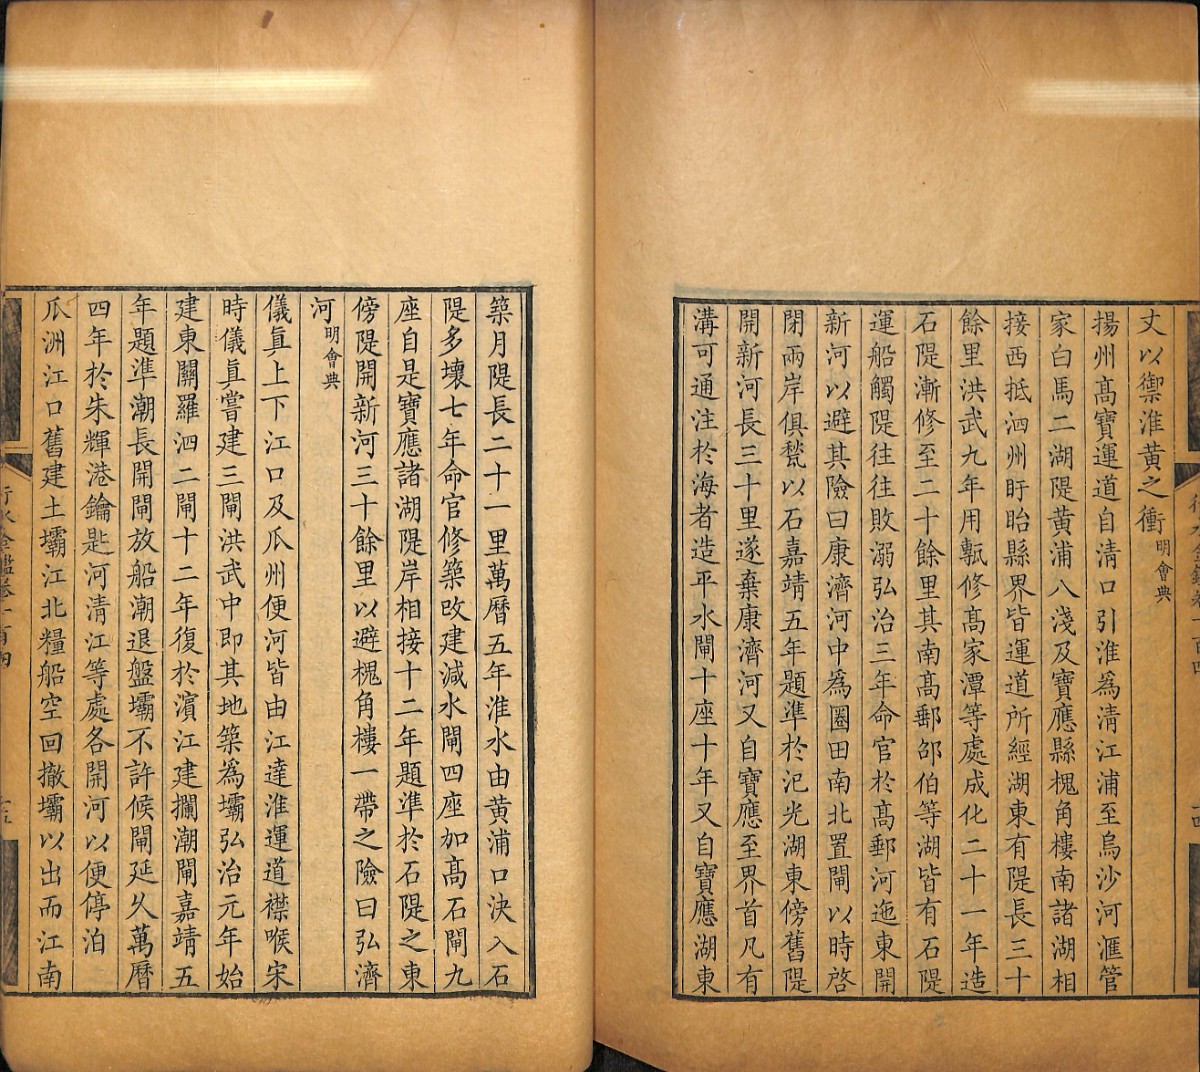 丈以禦淮黄之衝明會典
揚州髙寶運道自清口引淮為清江浦至烏沙河滙管
家白馬二湖隄黄浦八淺及寶應縣槐角樓南諸湖相
接西抵泗州盱眙縣界皆運道所經湖東有隄長三十
餘里洪武九年用甎修髙家潭等處成化二十一年造
石隄漸修至二十餘里其南髙郵邵伯等湖皆有石隄
運船觸隄往往敗溺弘治三年命官於髙郵河迤東開
新河以避其險曰康濟河中為圈田南北置閘以時啓
閉兩岸俱甃以石嘉靖五年題準於汜光湖東傍舊隄
開新河長三十里遂棄康濟河又自寶應至界首凡有
溝可通注於海者造平水閘十座十年又自寶應湖東
築月隄長二十一里萬曆五年淮水由黄浦口決入石
隄多壞七年命官修築改建減水閘四座加髙石閘九
座自是寶應諸湖隄岸相接十二年題準於石隄之東
傍隄開新河三十餘里以避槐角樓一帶之險曰弘濟
河明會典
儀眞上下江口及瓜州便河皆由江達淮運道襟喉宋
時儀眞嘗建三閘洪武中即其地築為壩弘治元年始
建東關羅泗二閘十二年復於濱江建攔潮閘嘉靖五
年題準潮長開閘放船潮退盤壩不許候閘延久萬曆
四年於朱輝港鑰匙河清江等處各開河以便停泊
瓜洲江口舊建土壩江北糧船空回撤壩以出而江南